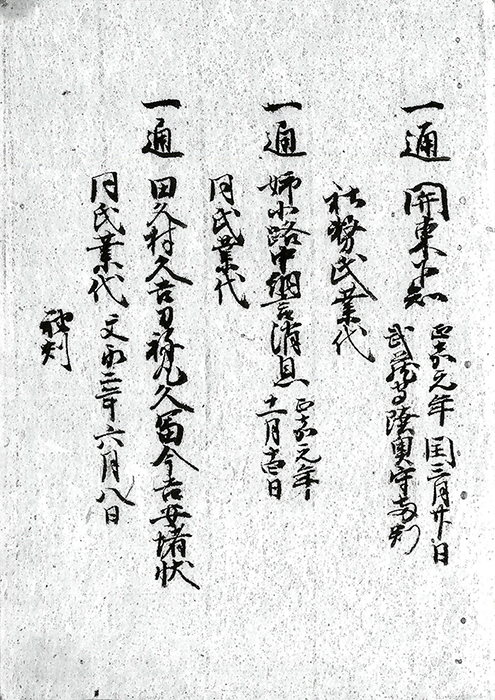 一通 関東下知 正嘉元年閏三月廿日
武蔵守陸奥守両判
社務氏業代
一通 姉小路中納言消息 正嘉元年
十一月十四日
同氏業代
一通 田久村久吉稲元久富今吉安堵状
同氏業代 文永二年六月八日
判